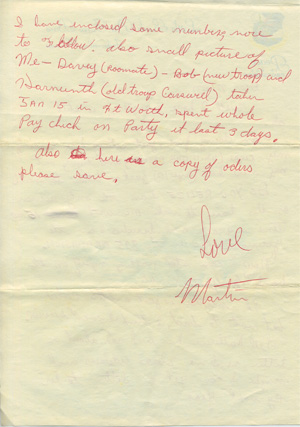 I have inclosed some numbers, more
to follow. also small picture of
Me - Davey (roomate) - Bob (new troop) and
(old troop Carswell) taken
JAN 15 in Ft Worth, spent whole
Pay check on Party it last 3 days.
also here is a copy of oders
please save.
Love
Martin